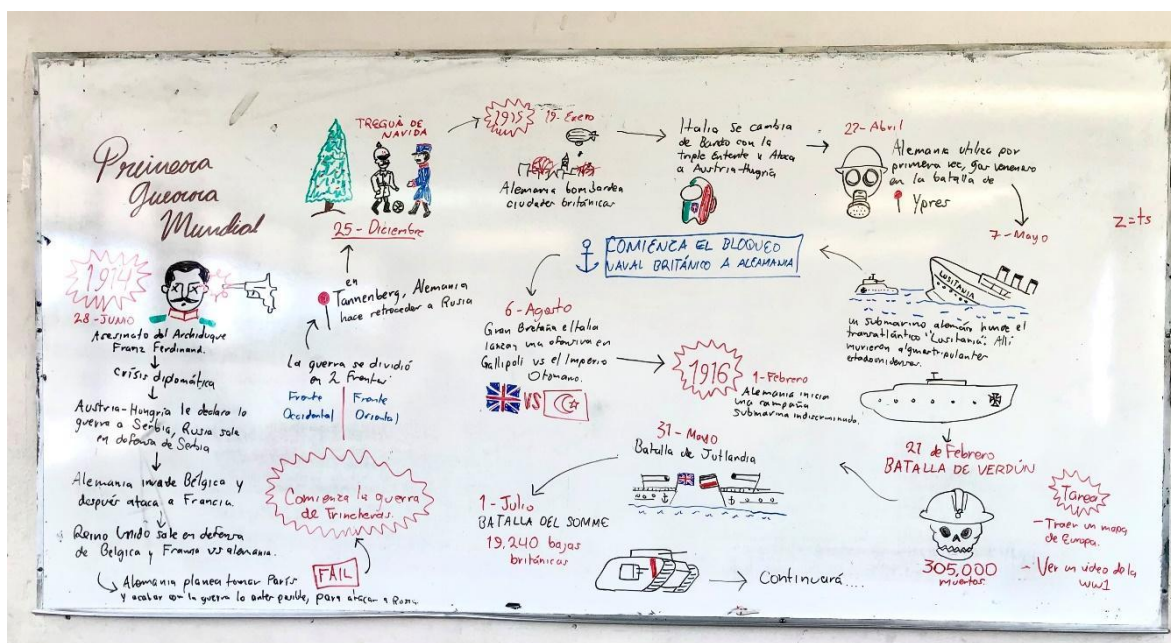 Primera
Guerra
Mundial
1914
28-JUNIO
Asesinato del Archiduque
Franz Ferdinand.
crisis diplomática
Austria-Hungría le declara la
guerra a Serbia, Rusia sale
en defensa de Serbia
Alemania invade Bélgica y
después ataca a Francia.
Reino Unido sale en defensa
de Bélgica y Francia vs alemania.
Alemania planea tomar París
y acabar con la guerra lo antes posible, para atacar a Rusia
FAIL
Comienza la guerra
de Trincheras.
La guerra se dividió
en 2 Frentes:
Frente
Occidental
Frente
Oriental
en
Tannenberg, Alemania
hace retroceder a Rusia
25-Diciembre
TREGUA DE
NAVIDA
1915
19-Enero
Alemania bombardea
ciudades británicas
Italia se cambia
de Bando con la
triple Entente y Ataca
a Austria-Hugría
22-Abril
Alemania utiliza por
primera vez, gas venenoso
en la batalla de
Ypres
7-Mayo
LUSITANIA
un submarino alemán hunde el
transatlántico "Lusitania". Allí
murieron algunos tripulantes
estadounidenses.
COMIENZA EL BLOQUEO
NAVAL BRITÁNICO A ALEMANIA
6-Agosto
Gran Bretaña e Italia
lanzan una ofensiva en
Gallipoli vs el Imperio
Otomano.
VS
1916
1-Febrero
Alemania inicia
una campaña
submarina indiscriminada.
21 de Febrero
BATALLA DE VERDÚN
305,000
muertos
31-Mayo
Batalla de Jutlandia
1-Julio
BATALLA DEL SOMME
19,240 bajas
británicas
Continuará...
z=ts
Tarea
-Traer un mapa
de Europa.
-Ver un video de la
WW1